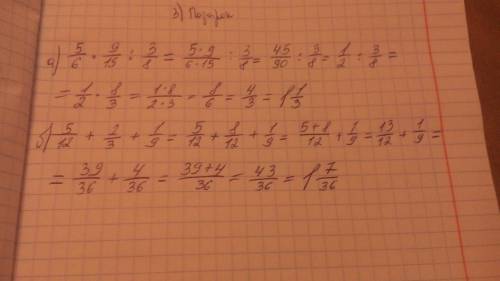 3) Подарок
а) 5/6 · 9/15 : 3/8 = 5·9/6·15 : 3/8 = 45/90 : 3/8 = 1/2 : 3/8 =
= 1/2 · 8/3 = 1·8/2·3 = 8/6 = 4/3 = 1 1/3
б) 5/12 + 2/3 + 1/9 = 5/12 + 8/12 + 1/9 = 5+8/12 + 1/9 = 13/12 + 1/9 =
= 39/36 + 4/36 = 39+4/36 = 43/36 = 1 7/36